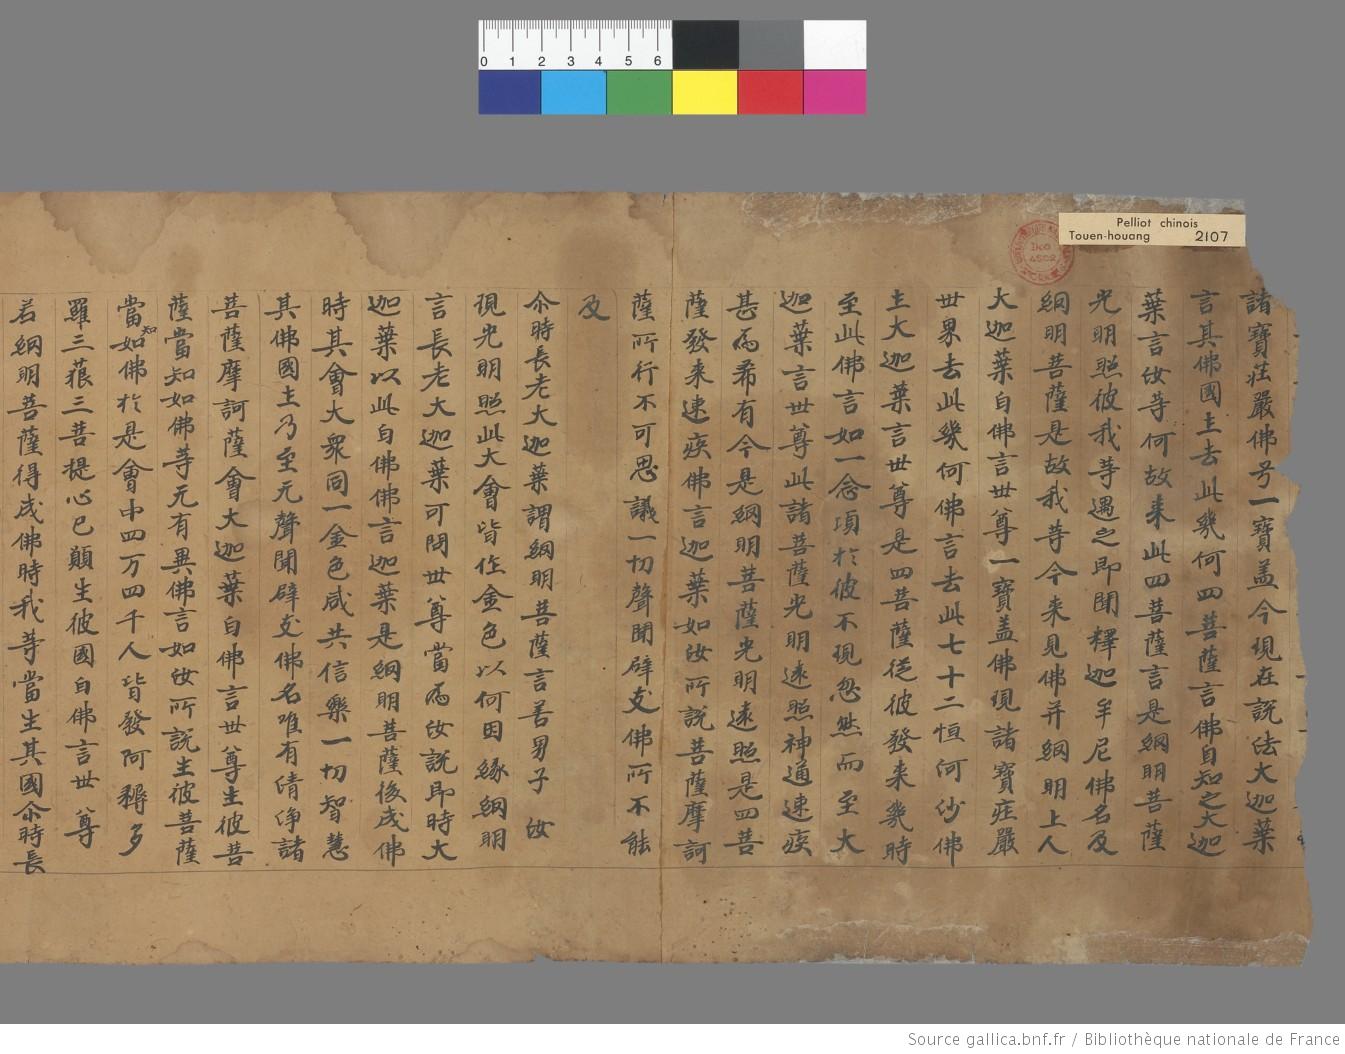 0 1 2 3 4 5 6
Pelliot chinois
Touen-houang 2107
諸寶莊嚴佛号一寶盖今現在說法大迦葉
言其佛國土去此幾何四菩薩言佛自知之大迦
葉言汝等何故来此四菩薩言是網明菩薩
光明照彼我等遇之即聞釋迦牟尼佛名及
網明菩薩是故我等今来見佛并網明上人
大迦葉白佛言世尊一寶盖佛現諸寶莊嚴
世界去此幾何佛言去此七十二恒河沙佛
土大迦葉言世尊是四菩薩從彼發来幾時
至此佛言如一念項於彼不現忽然而至大
迦葉言世尊此諸菩薩光明遠照神通速疾
甚為希有今是網明菩薩光明遠照是四菩
薩發来速疾佛言迦葉如汝所說菩薩摩訶
薩所行不可思議一切聲聞辟支佛所不能
及
尒時長老大迦葉謂網明菩薩言善男子汝
現光明照此大會皆作金色以何因緣網明
言長老大迦葉可問世尊當為汝說即時大
迦葉以此白佛佛言迦葉是網明菩薩後成佛
時其會大衆同一金色咸共信樂一切智慧
其佛國土乃至无聲聞辟支佛名唯有清淨諸
菩薩摩訶薩會大迦葉白佛言世尊生彼菩
薩當知如佛等无有異佛言如汝所說生彼菩薩
當知如佛於是會中四万四千人皆發阿耨多
羅三藐三菩提心已願生彼國白佛言世尊
若網明菩薩得成佛時我等當生其國尒時長
Source gallica.bnf.fr / Bibliothèque nationale de France